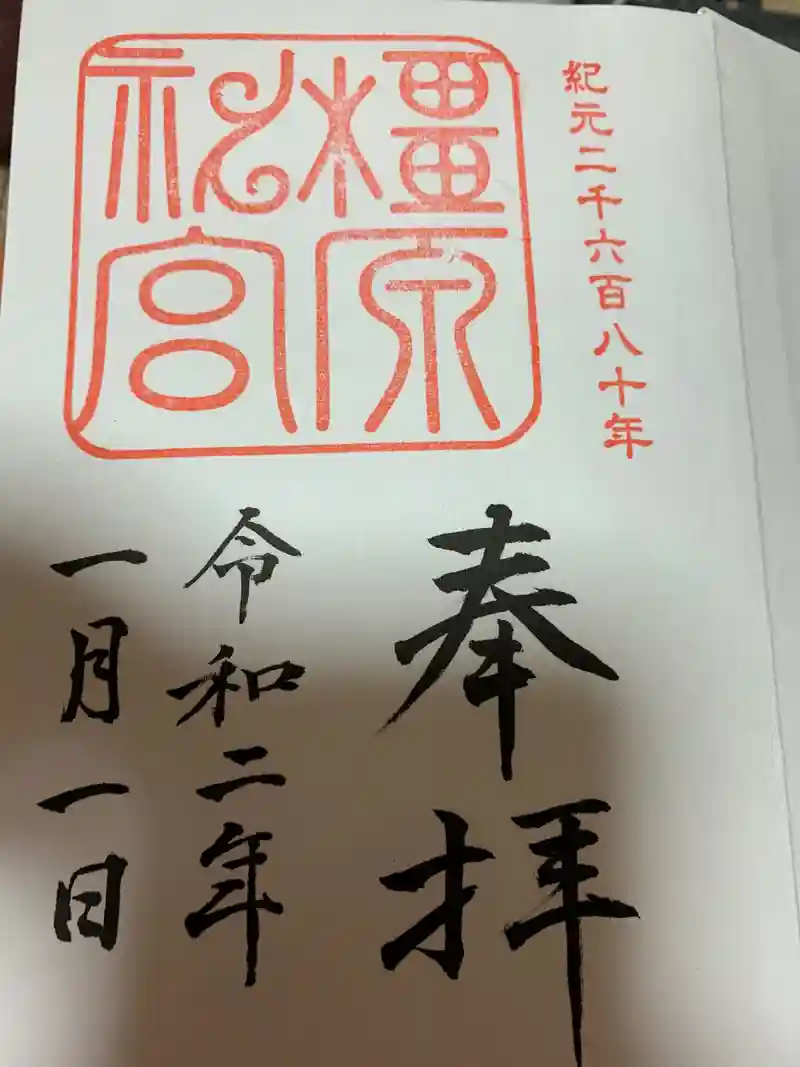 紀元二千六百八十年
橿原
神宮
奉拝
令和二年
一月一日